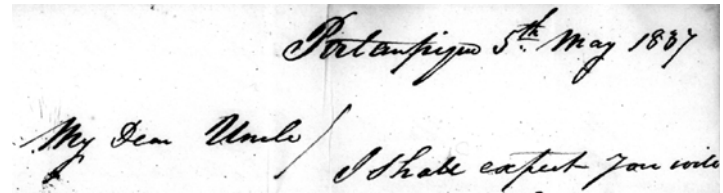 Portaupique 5th May 1837
My Dear Uncle /
I Shall expect you will